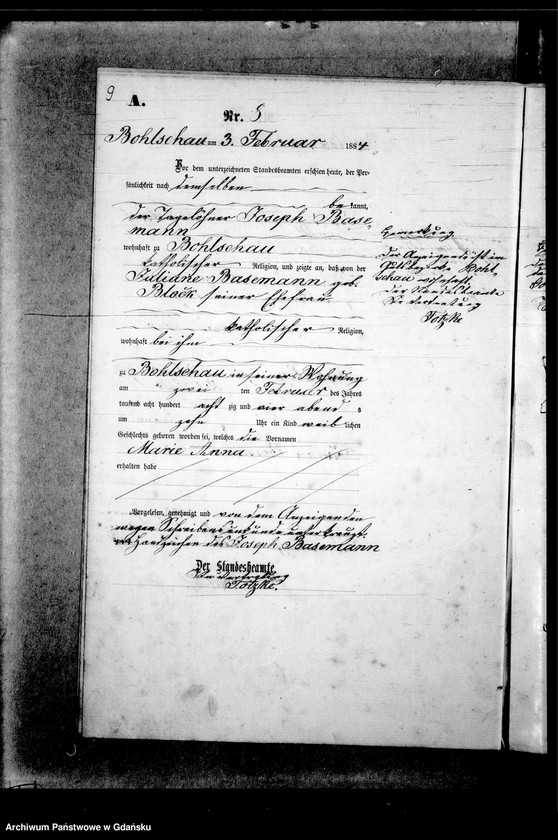 9
A.
Nr. 5
Bohlschau am 3. Februar 1884
Vor dem unterzeichneten Standesbeamten erschien heute, der Per-
sönlichkeit nach demselben
bekannt,
der Tagelöhner Joseph Base-
mann
wohnhaft zu Bohlschau
katholischer Religion, und zeigte an, daß von der
Juliane Basemann geb.
Block seiner Ehefrau
katholischer Religion,
wohnhaft bei ihm
zu Bohlschau in seiner Wohnung
am zwei ten Februar des Jahres
tausend acht hundert acht zig und vier abend s
um zehn Uhr ein Kind weib lichen
Geschlechts geboren worden sei, welches die Vornamen
Marie Anna
erhalten habe
Vorgelesen, genehmigt und von dem Anzeigenden
wegen Schreibensunkunde unterkreuzt.
Handzeichen des Joseph Basemann
Der Standesbeamte.
In Vertretung
Totzke.
Bemerkung
Der Anzeigende ist im
Gutsbezirke Bohl-
schau
Der Standesbeamte
In Vertretung
Totzke
Archiwum Państwowe w Gdańsku